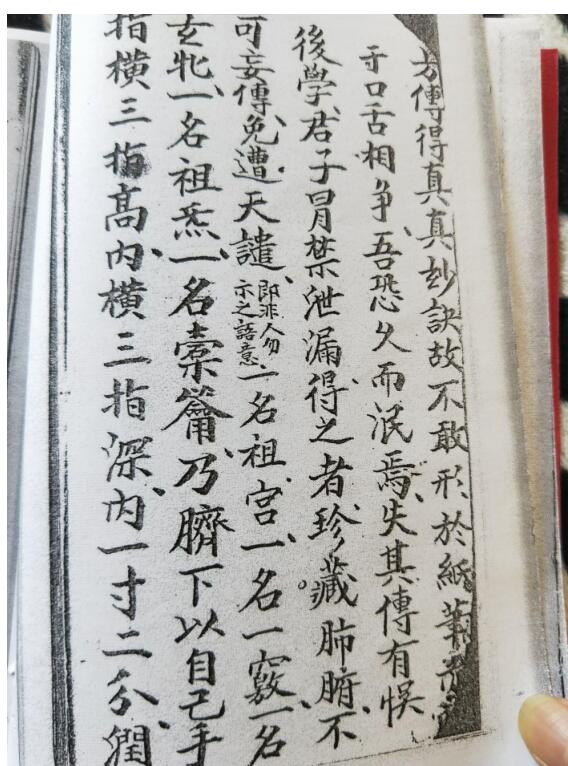 傳得真真玅訣故不敢形於紙筆
于口舌相争、吾恐久而泯焉、失其傳有悞
後學、君子冒禁泄漏、得之者、珍藏肺腑。不
可妄傳、免遭天譴、即非人勿示之語意一名祖宫、一名一竅、一名
玄牝、一名祖炁、一名槖籥、乃臍下以自己手
指横三指高内、横三指深、内一寸二分、潤